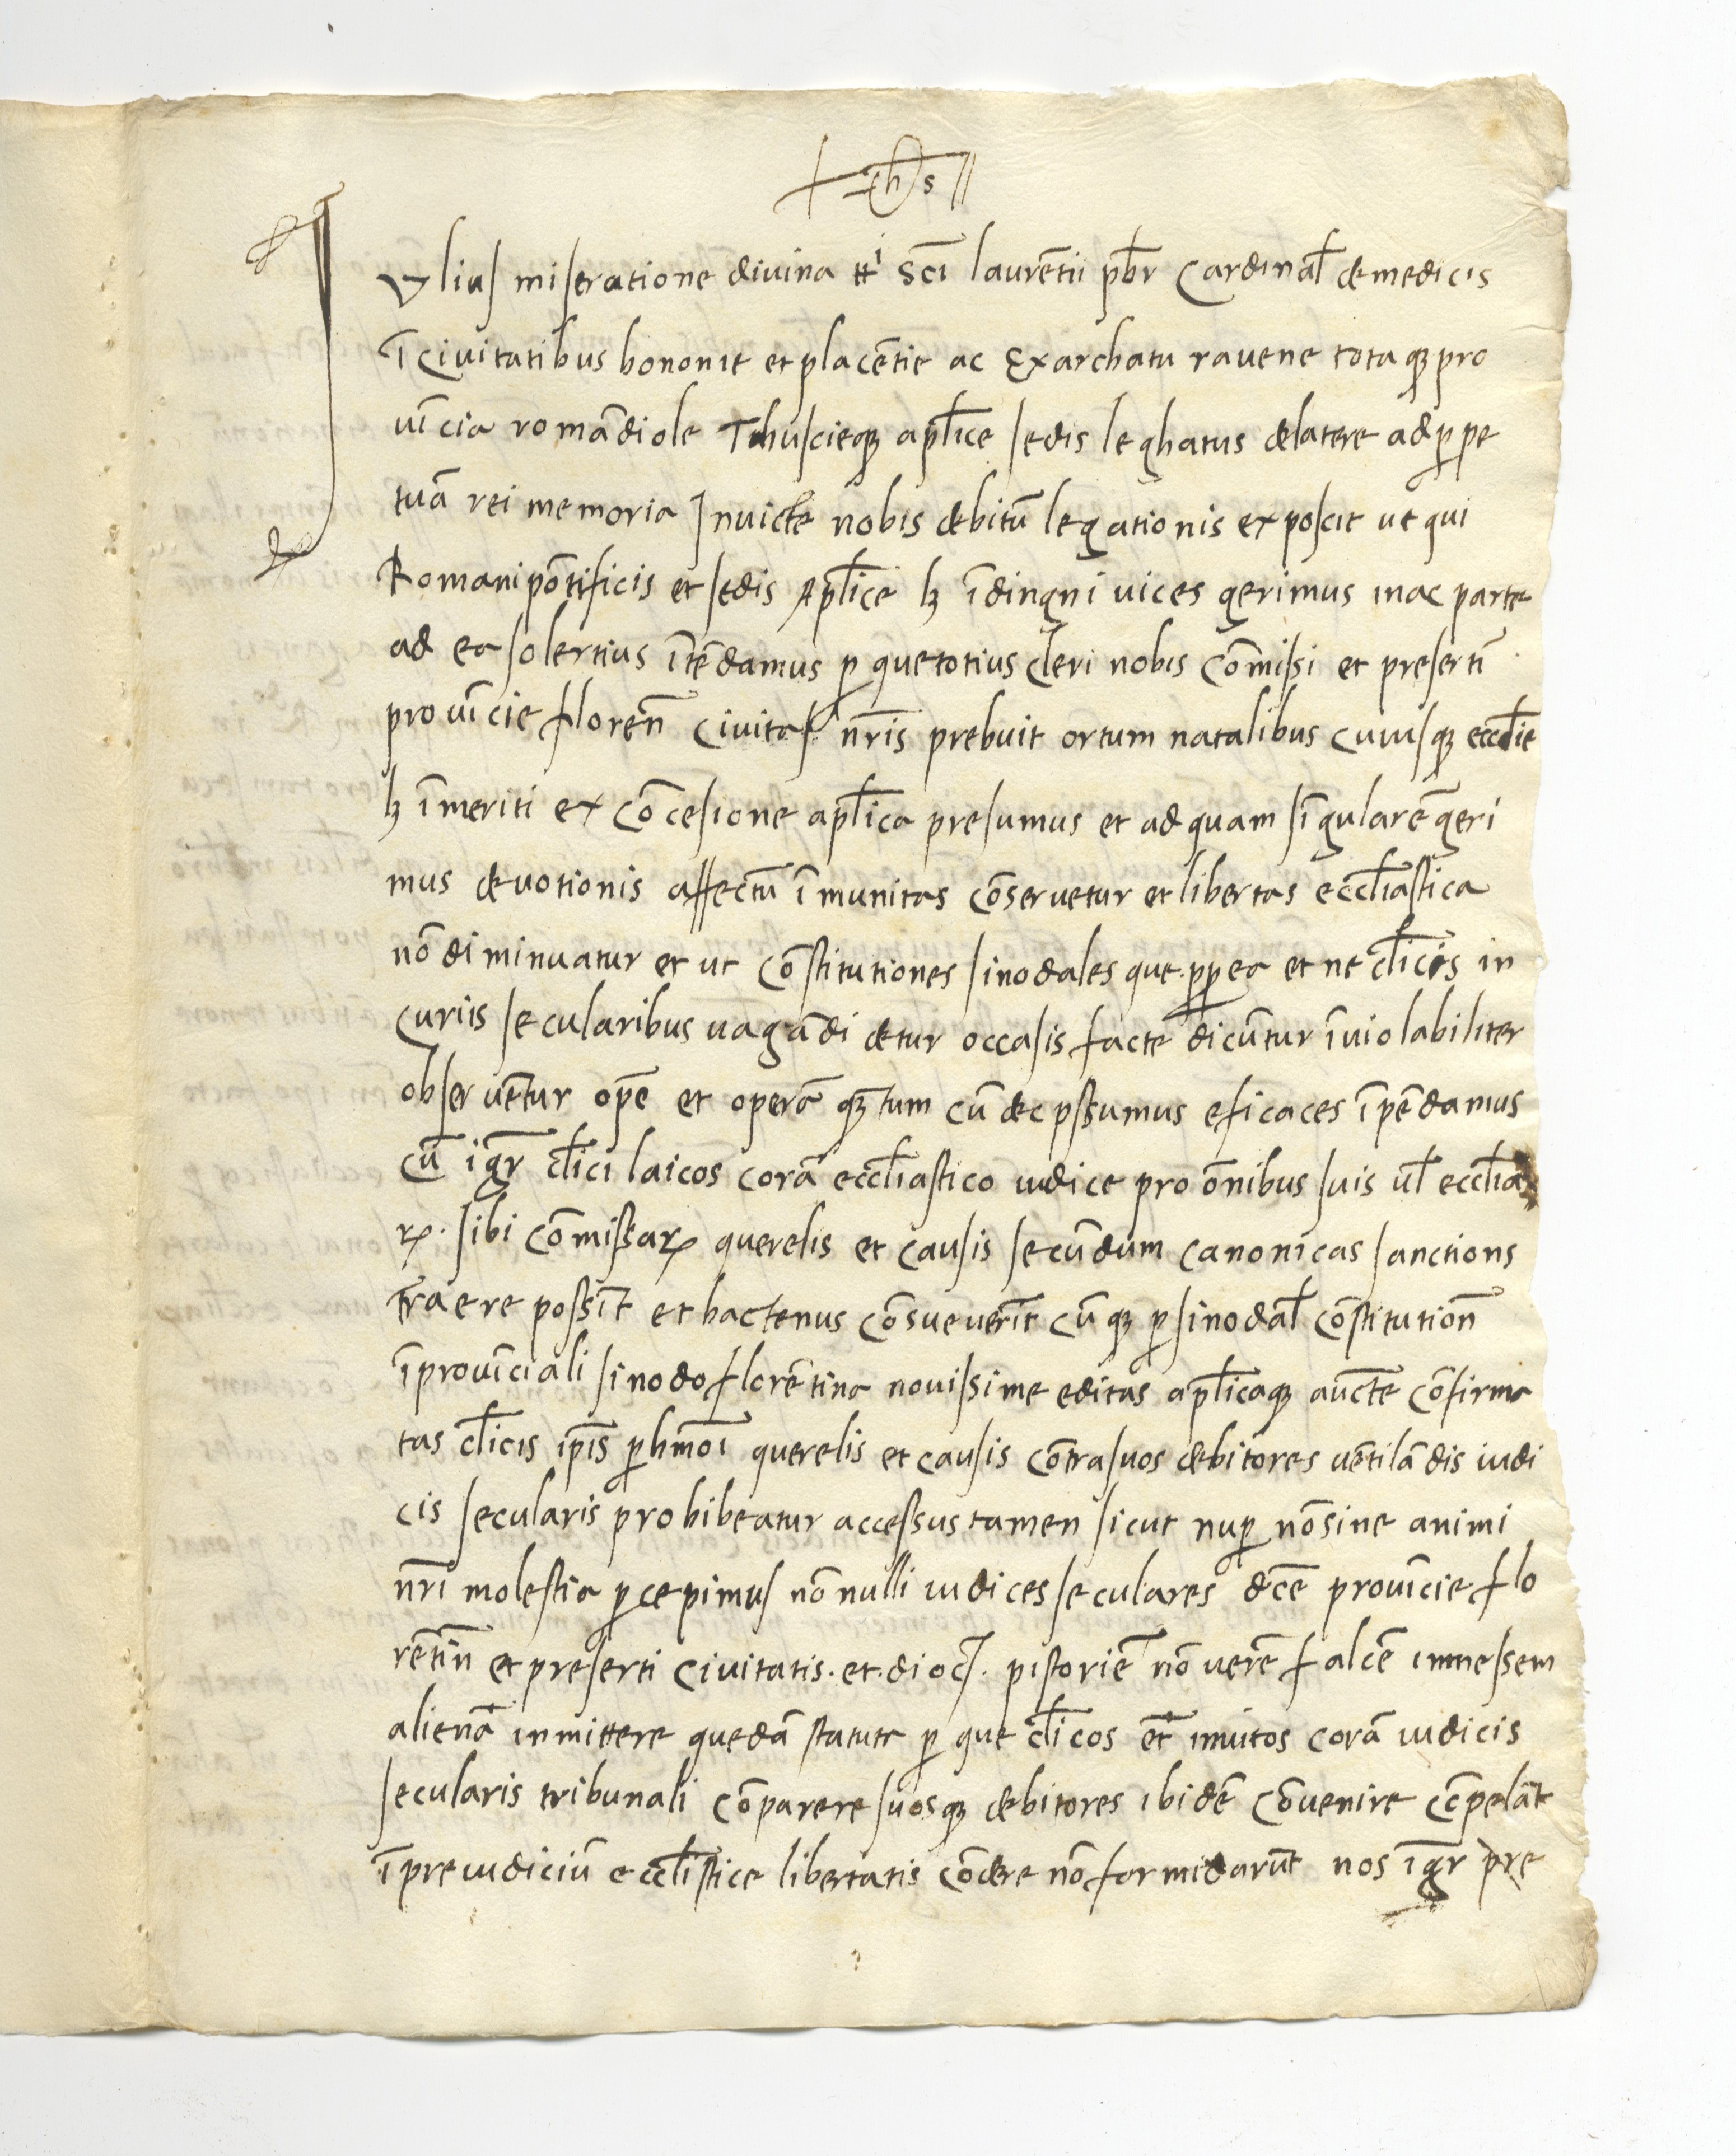 + yhs //
Iulius miseratione divina tti Sci laurētii pbr Cardinal̄ de medicis
ī Civitatibus bononie et placētie ac Exarchatu ravene totaqꝫ pro
vīcia romādiole Thuscieqꝫ apl̄ice sedis leghatus de latere ad ꝑpe
tuā rei memoria Inuicte nobis debitū legationis exposcit ut qui
Romani pōtificis et sedis Apl̄ice lꝫ īdingni vices gerimus in ac parte
ad ea solertius ītēdamus ꝑ que totius cleri nobis Cōmissi et presertī
provīcie floreñ Civitas nr̄is prebuit ortum natalibus Cuiusqꝫ eccl̄ie
lꝫ īmeriti ex Cōcesione apl̄ica presumus et ad quam sīgularē geri
mus devotionis affectū īmunitas Cōservetur et libertas eccl̄iastica
nō diminuatur et ut Cōstitutiones sinodales que ꝓpea et ne cl̄icis in
Curiis secularibus vagādi detur occasis facte dicūtur īviolabiliter
observētur opē et operā qꝫtum cū dec pssumus eficaces īpēdamus
Cū igr̄ cl̄ici laicos corā eccl̄iastico iudice pro ōnibus suis ul̄ eccl̄ia
rꝝ. sibi Cōmissarꝝ querelis et Causis secūdum Canonicas sanctions
traere possīt et hactenus Cōsueverīt Cūqꝫ ꝑ sinodal̄ Cōstitutioñ
ī provīciali sinodo florētina novissime editas apl̄icaqꝫ aucte Cōfirma
tas cl̄icis ip̄is ꝑ hmōi querelis et Causis Cōtra suos debitores vētilādis iudi
cis secularis prohibeatur accessus tamen sicut nuꝑ nō sine animi
nr̄i molestia ꝑcepimus nō nulli iudices seculares dc̄e provīcie flo
rētiñ et preserti Civitatis. et. dioc. pistoriē nō verē falcē in messem
alienā inmittere quedā statuta ꝑ que cl̄icos et̄ invitos corā iudicis
secularis tribunali Cōparere suosqꝫ debitores ibidē Cōvenire Cōpelāt
ī preiudiciū eccl̄istice libertatis Cōdere nō formidarūt nos igr̄ pre